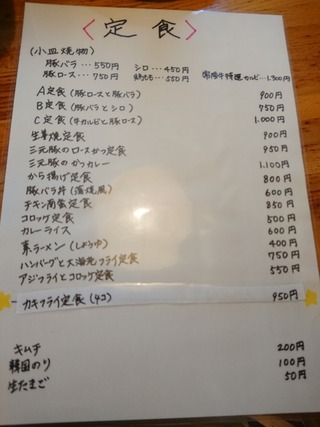 〈定食〉
(小皿焼物)
豚バラ…550円 シロ…450円
豚ロース…750円 鶏もも…550円 常陸牛特選カルビ…1.300円
A定食(豚ロースと豚バラ) 900円
B定食(豚バラとシロ) 750円
C定食(牛カルビと豚ロース) 1.000円
生姜焼定食 900円
三元豚のロースかつ定食 950円
三元豚のかつカレー 1.100円
から揚げ定食 800円
豚バラ丼(蒲焼風) 600円
チキン南蛮定食 850円
コロッケ定食 500円
カレーライス 600円
素ラーメン(しょうゆ) 400円
ハンバーグと大海老フライ定食 750円
アジフライとコロッケ定食 550円
カキフライ定食(4コ) 950円
キムチ 200円
韓国のり 100円
生たまご 50円